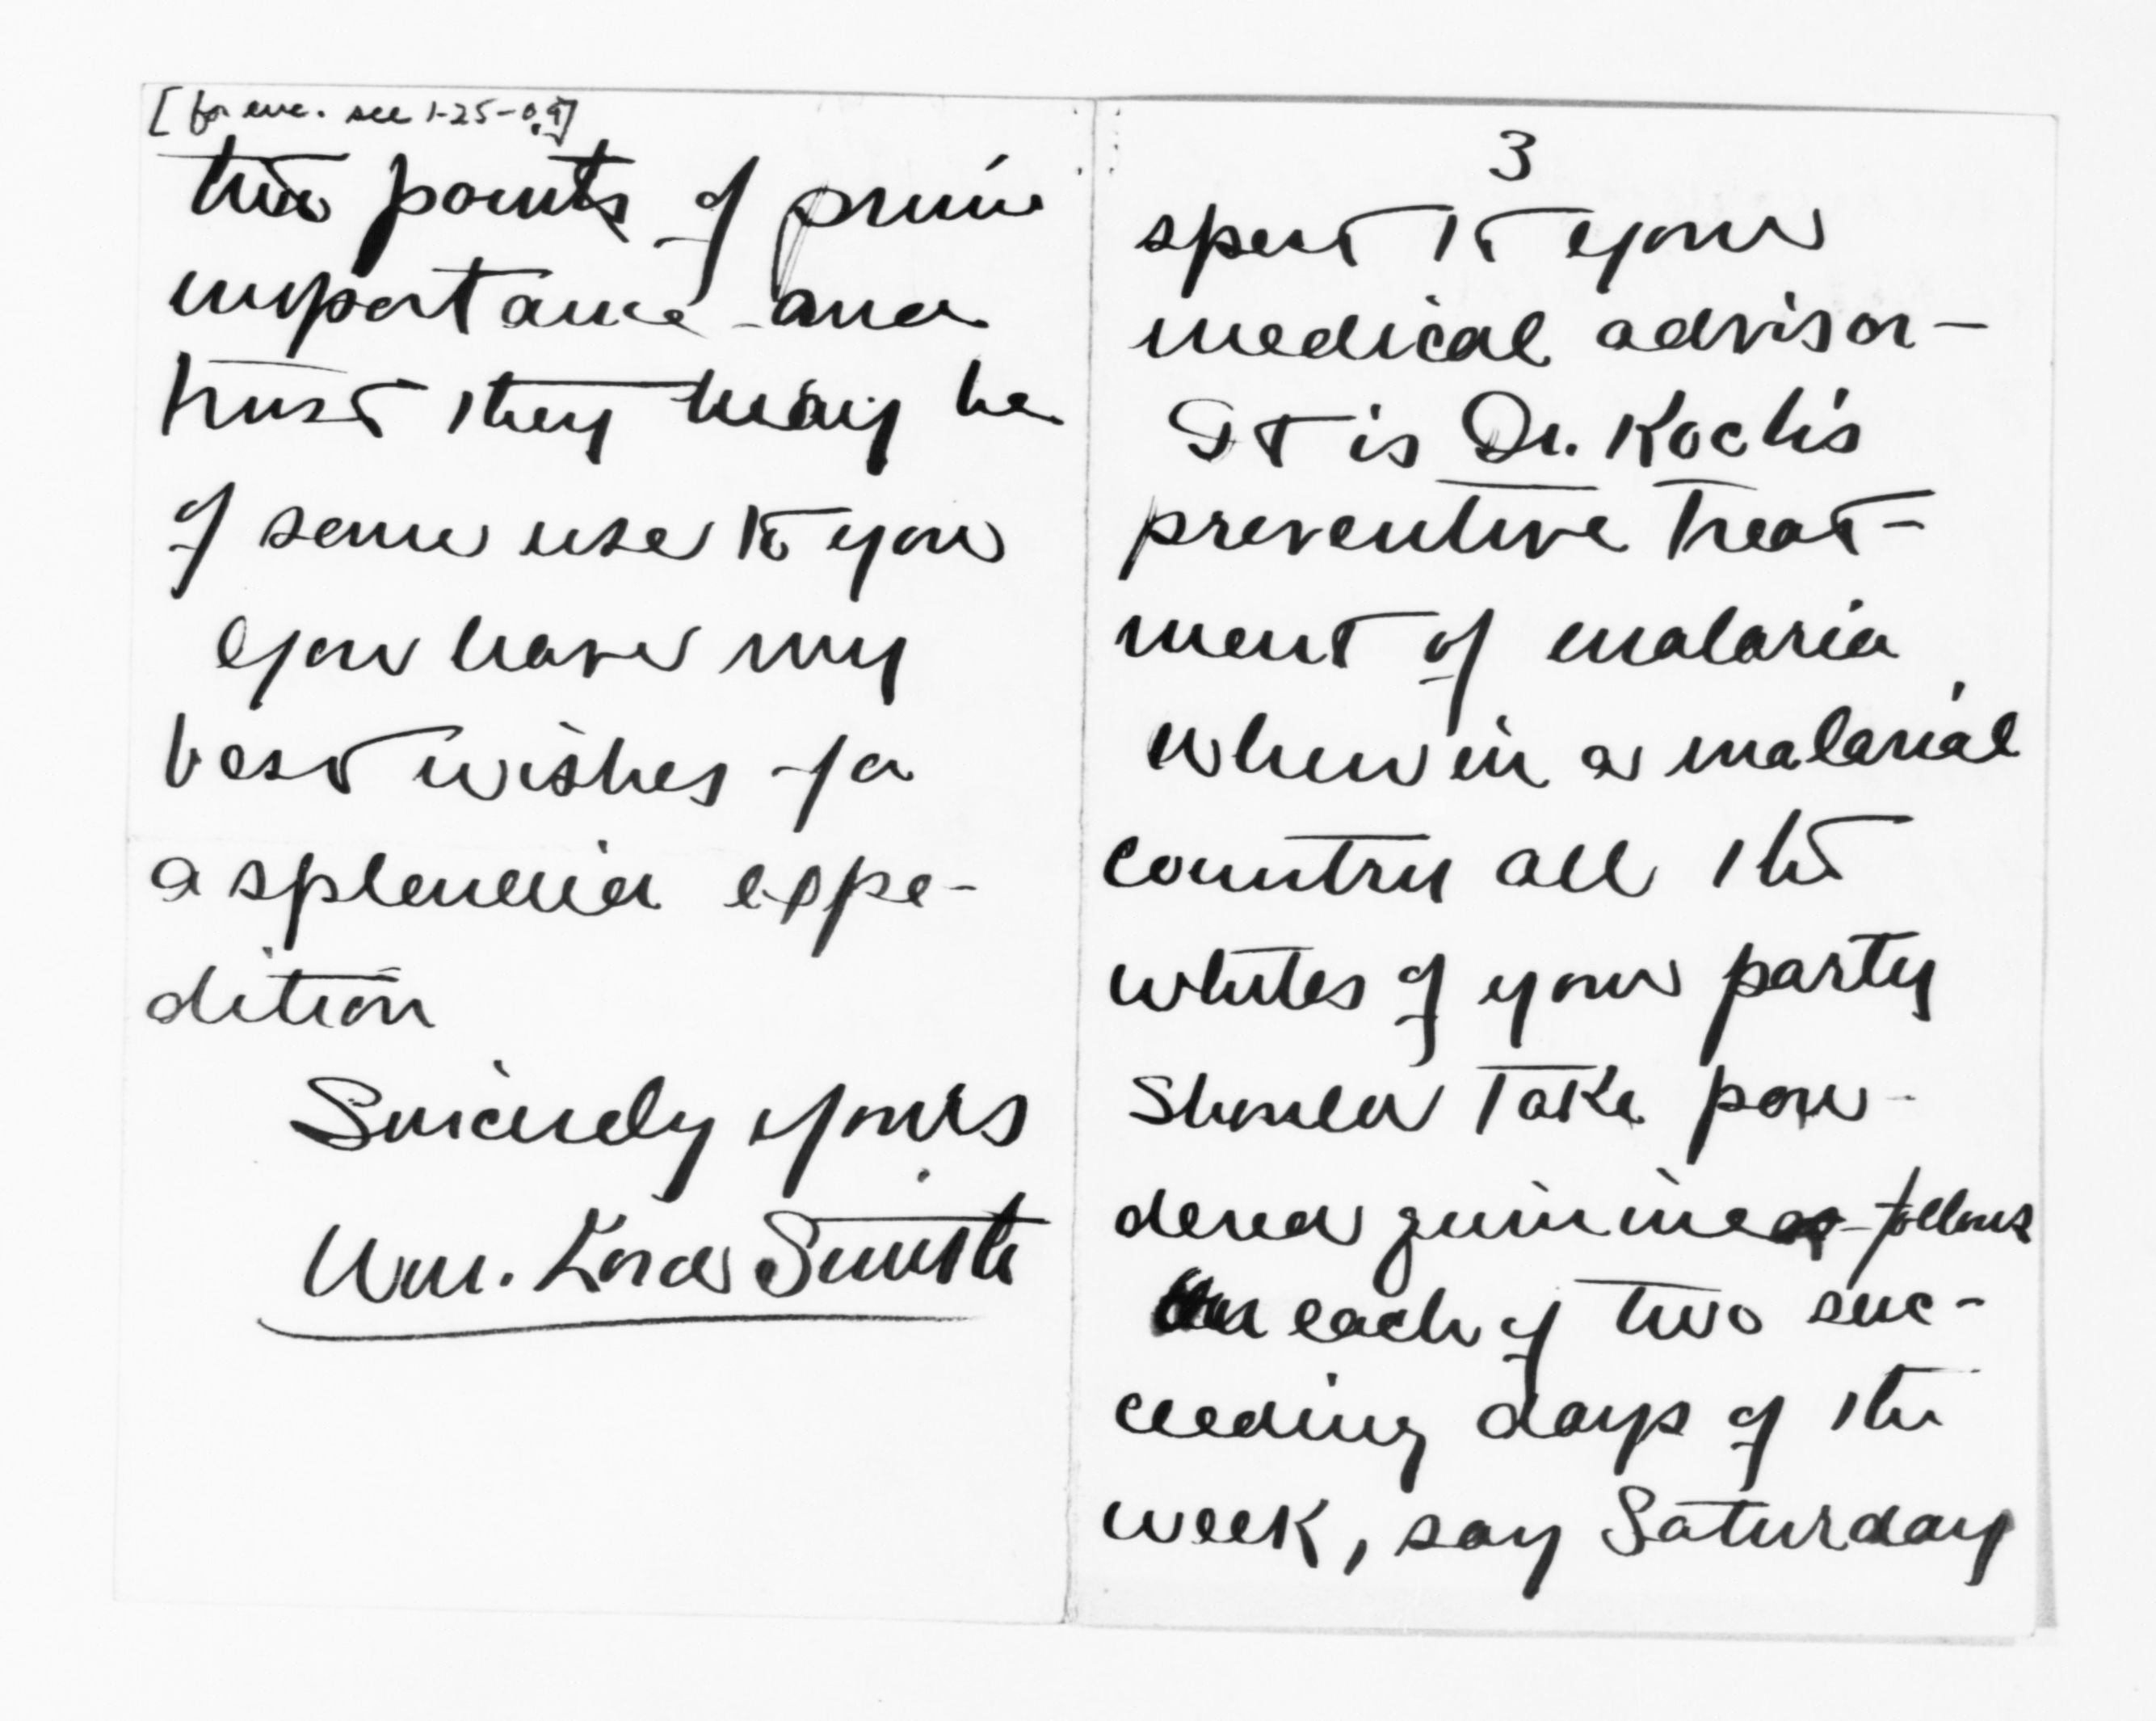 [for enc. see 1-25-09]
two points of prime
importance and
trust they may be
of some use to you
You have my
best wishes for
a splendid expe-
dition
Sincerely yours
Wm. Lord Smith
3
spect to your
medical advisor —
It is Dr. Koch's
preventive treat-
ment of malaria
When in a malarial
country all the
whites of your party
should take pow-
dered quinine as follows
On each of two suc-
ceeding days of the
week, say Saturday